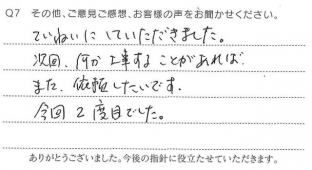 Q7 その他、ご意見ご感想、お客様の声をお聞かせください。
ていねいにしていただきました。
次回、何か工事することがあれば
また、依頼したいです。
今回2度目でした。
ありがとうございました。今後の指針に役立たせていただきます。